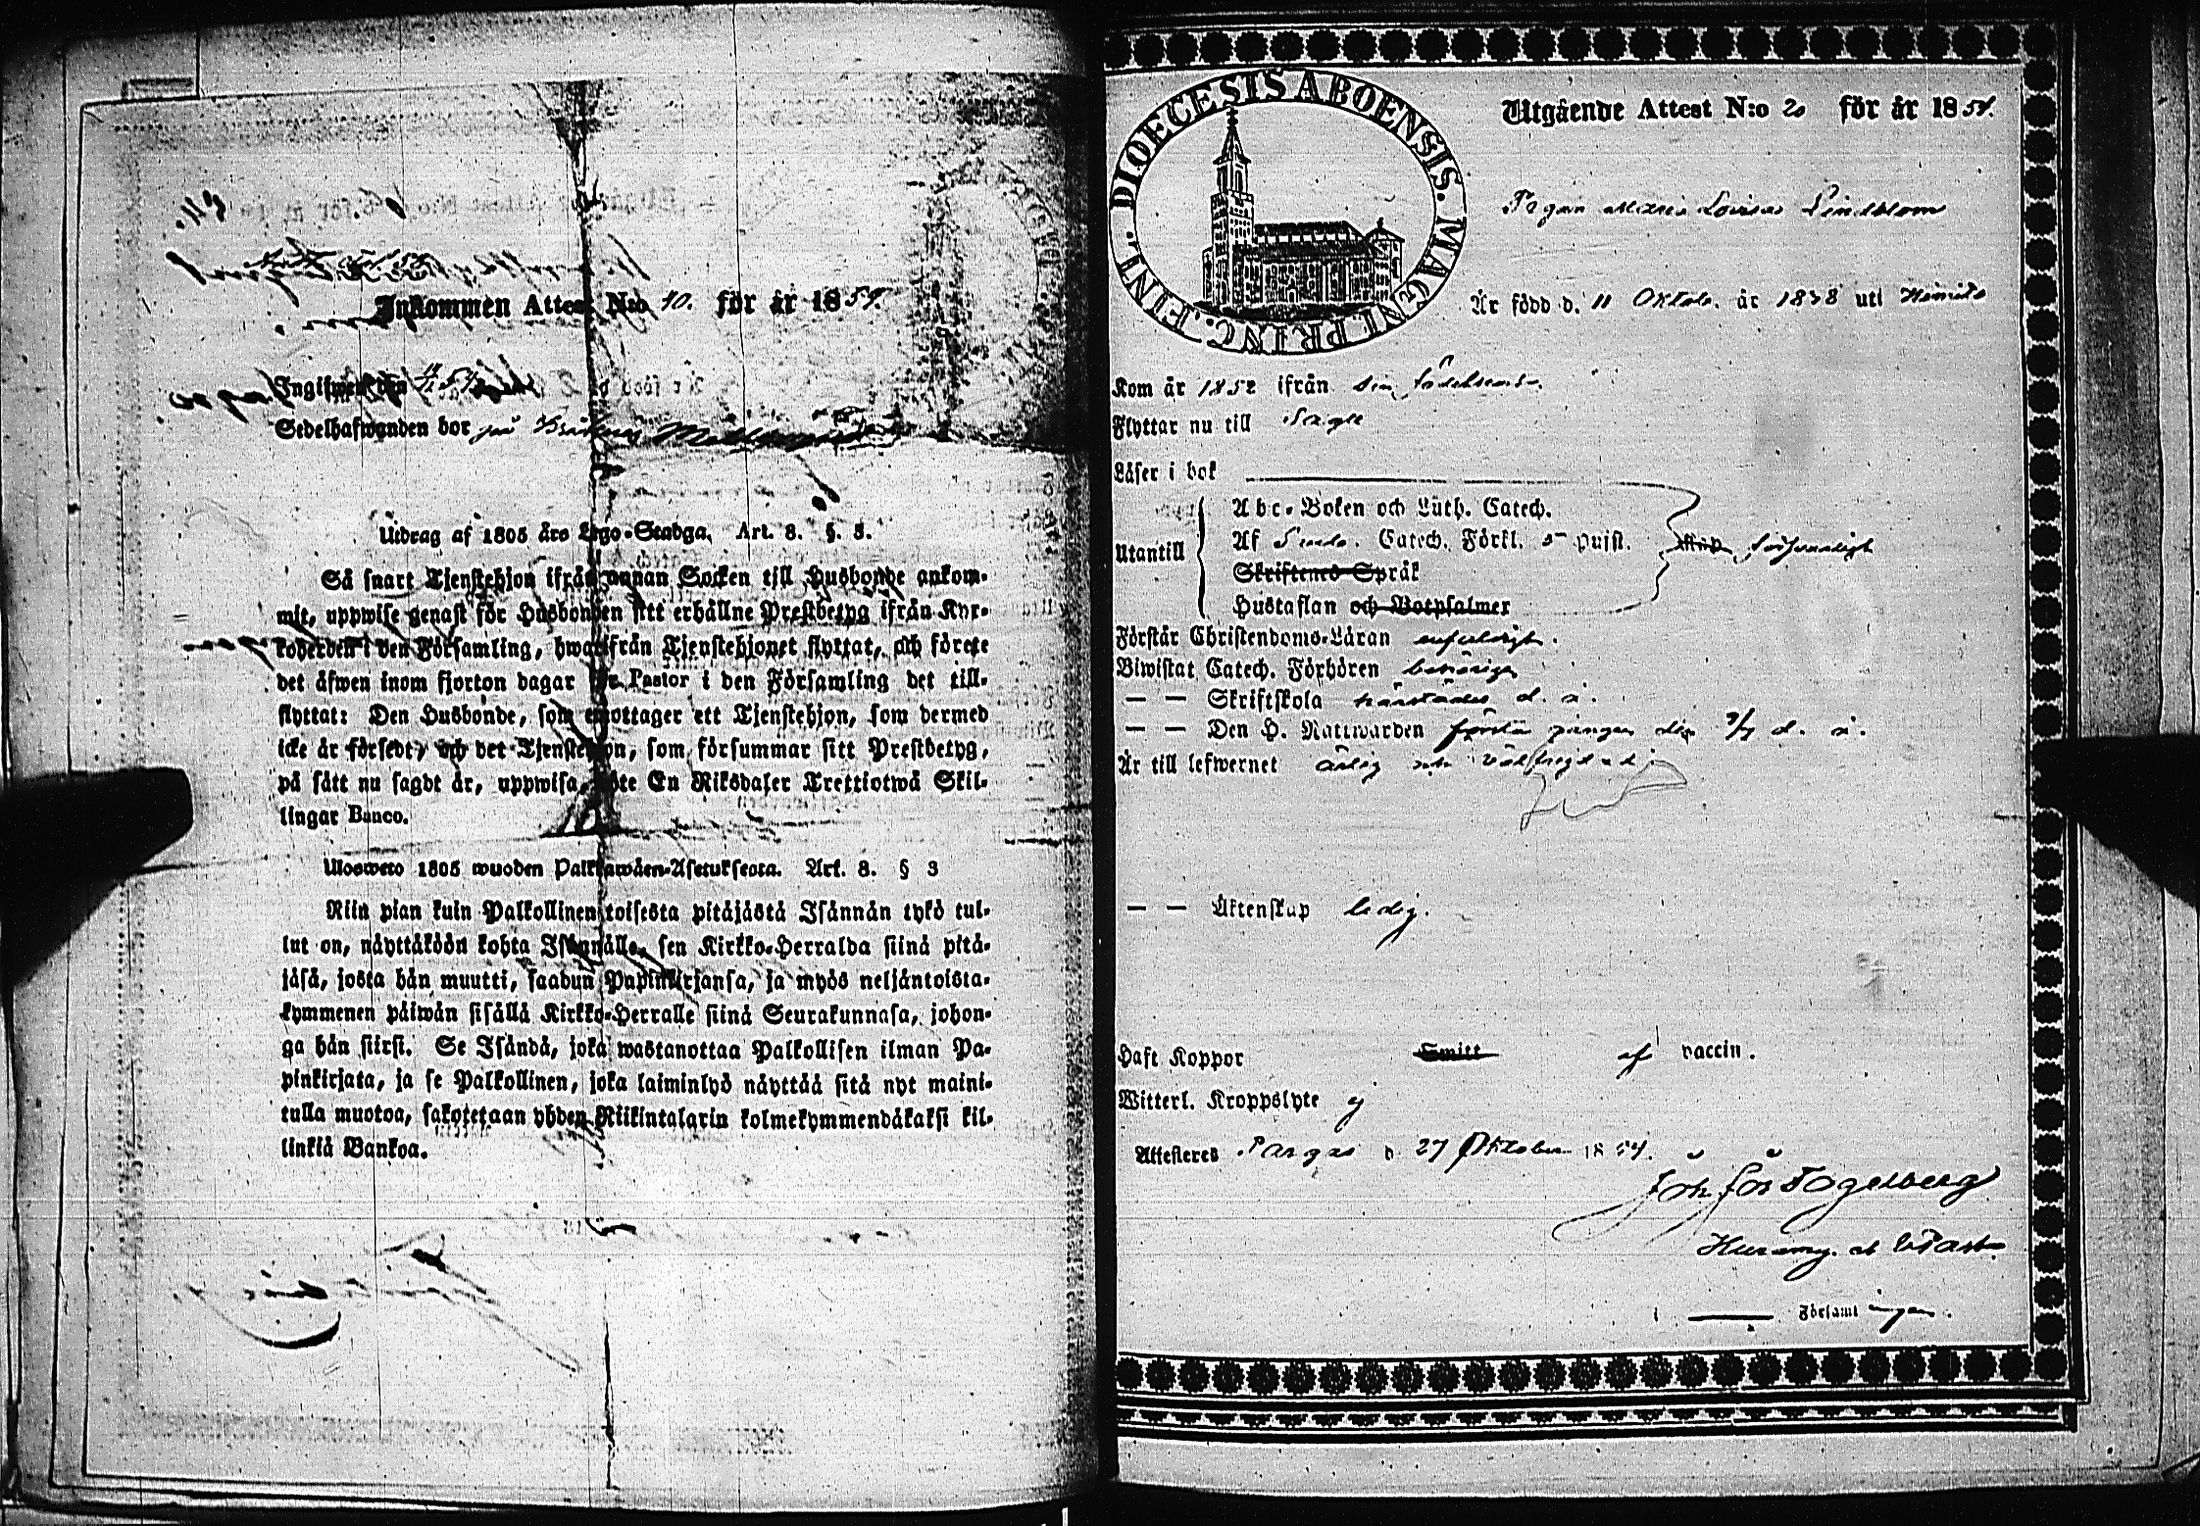 Inkommen Attest N:o 40. för år 1854.
Sedelhafwanden bor på
Utdrag af 1805 års Lego-Stadga. Art. 8. §. 3.
Så snart Tjenstehjon ifrån annan Socken till Husbonde ankom-
mit, uppwise genast för Husbonden sitt erhållne Prestbetyg ifrån Kyr-
koherden i den Församling, hwarifrån Tjenstehjonet flyttat, och förete
det äfwen inom fjorton dagar för Pastor i den Församling det till-
flyttat: Den Husbonde, som emottager ett Tjenstehjon, som dermed
icke är försedt, och det Tjenstehjon, som försummar sitt Prestbetyg,
på sätt nu sagdt är, uppwisa, böte En Riksdaler Trettiotwå Skil-
lingar Banco.
Ulosweto 1805 wuoden Palkkawäen-Asetuksesta. Art. 8. § 3
Niin pian kuin Palkollinen toisesta pitäjästä Isännän tykö tul-
lut on, näyttäköön kohta Isännälle, sen Kirkko-Herralda siinä pitä-
jäsä, josta hän muutti, saadun Papinkirjansa, ja myös neljäntoista-
kymmenen päiwän sisällä Kirkko-Herralle siinä Seurakunnasa, johon-
ga hän siirsi. Se Isändä, joka wastanottaa Palkollisen ilman Pa-
pinkirjata, ja se Palkollinen, joka laiminlyö näyttää sitä nyt maini-
tulla muotoa, sakotetaan yhden Riikintalarin kolmekymmendäkaksi kil-
linkiä Bankoa.
FINL. DIOECESIS ABOENSIS. MAGNI PRINC.
Utgående Attest N:o 20 för år 1854.
Pigan Maria Lovisa Lindblom
Är född d. 11 Oktob. år 1838 uti Kimito
Kom år 1852 ifrån sin födelseort
Flyttar nu till
Läser i bok
Utantill
Abc-Boken och Luth. Catech.
Af Catech. Förkl. pujst. försvarligt
Skriftenes Språk
Hustaflan och Botpsalmer
Förstår Christendoms-Läran enfaldigt.
Biwistat Catech. Förhören behörigen
— — Skriftskola härstädes d. å.
— — Den H. Nattwarden första gången den d. å.
Är till lefwernet ärlig och välfrejdad.
— — Äktenskap ledig.
Haft Koppor Smitt af vaccin.
Witterl. Kroppslyte ej
Attesteres Pargas d. 27 Oktober 1854.
Joh. Jos. Fogelberg
i — Församlingen.